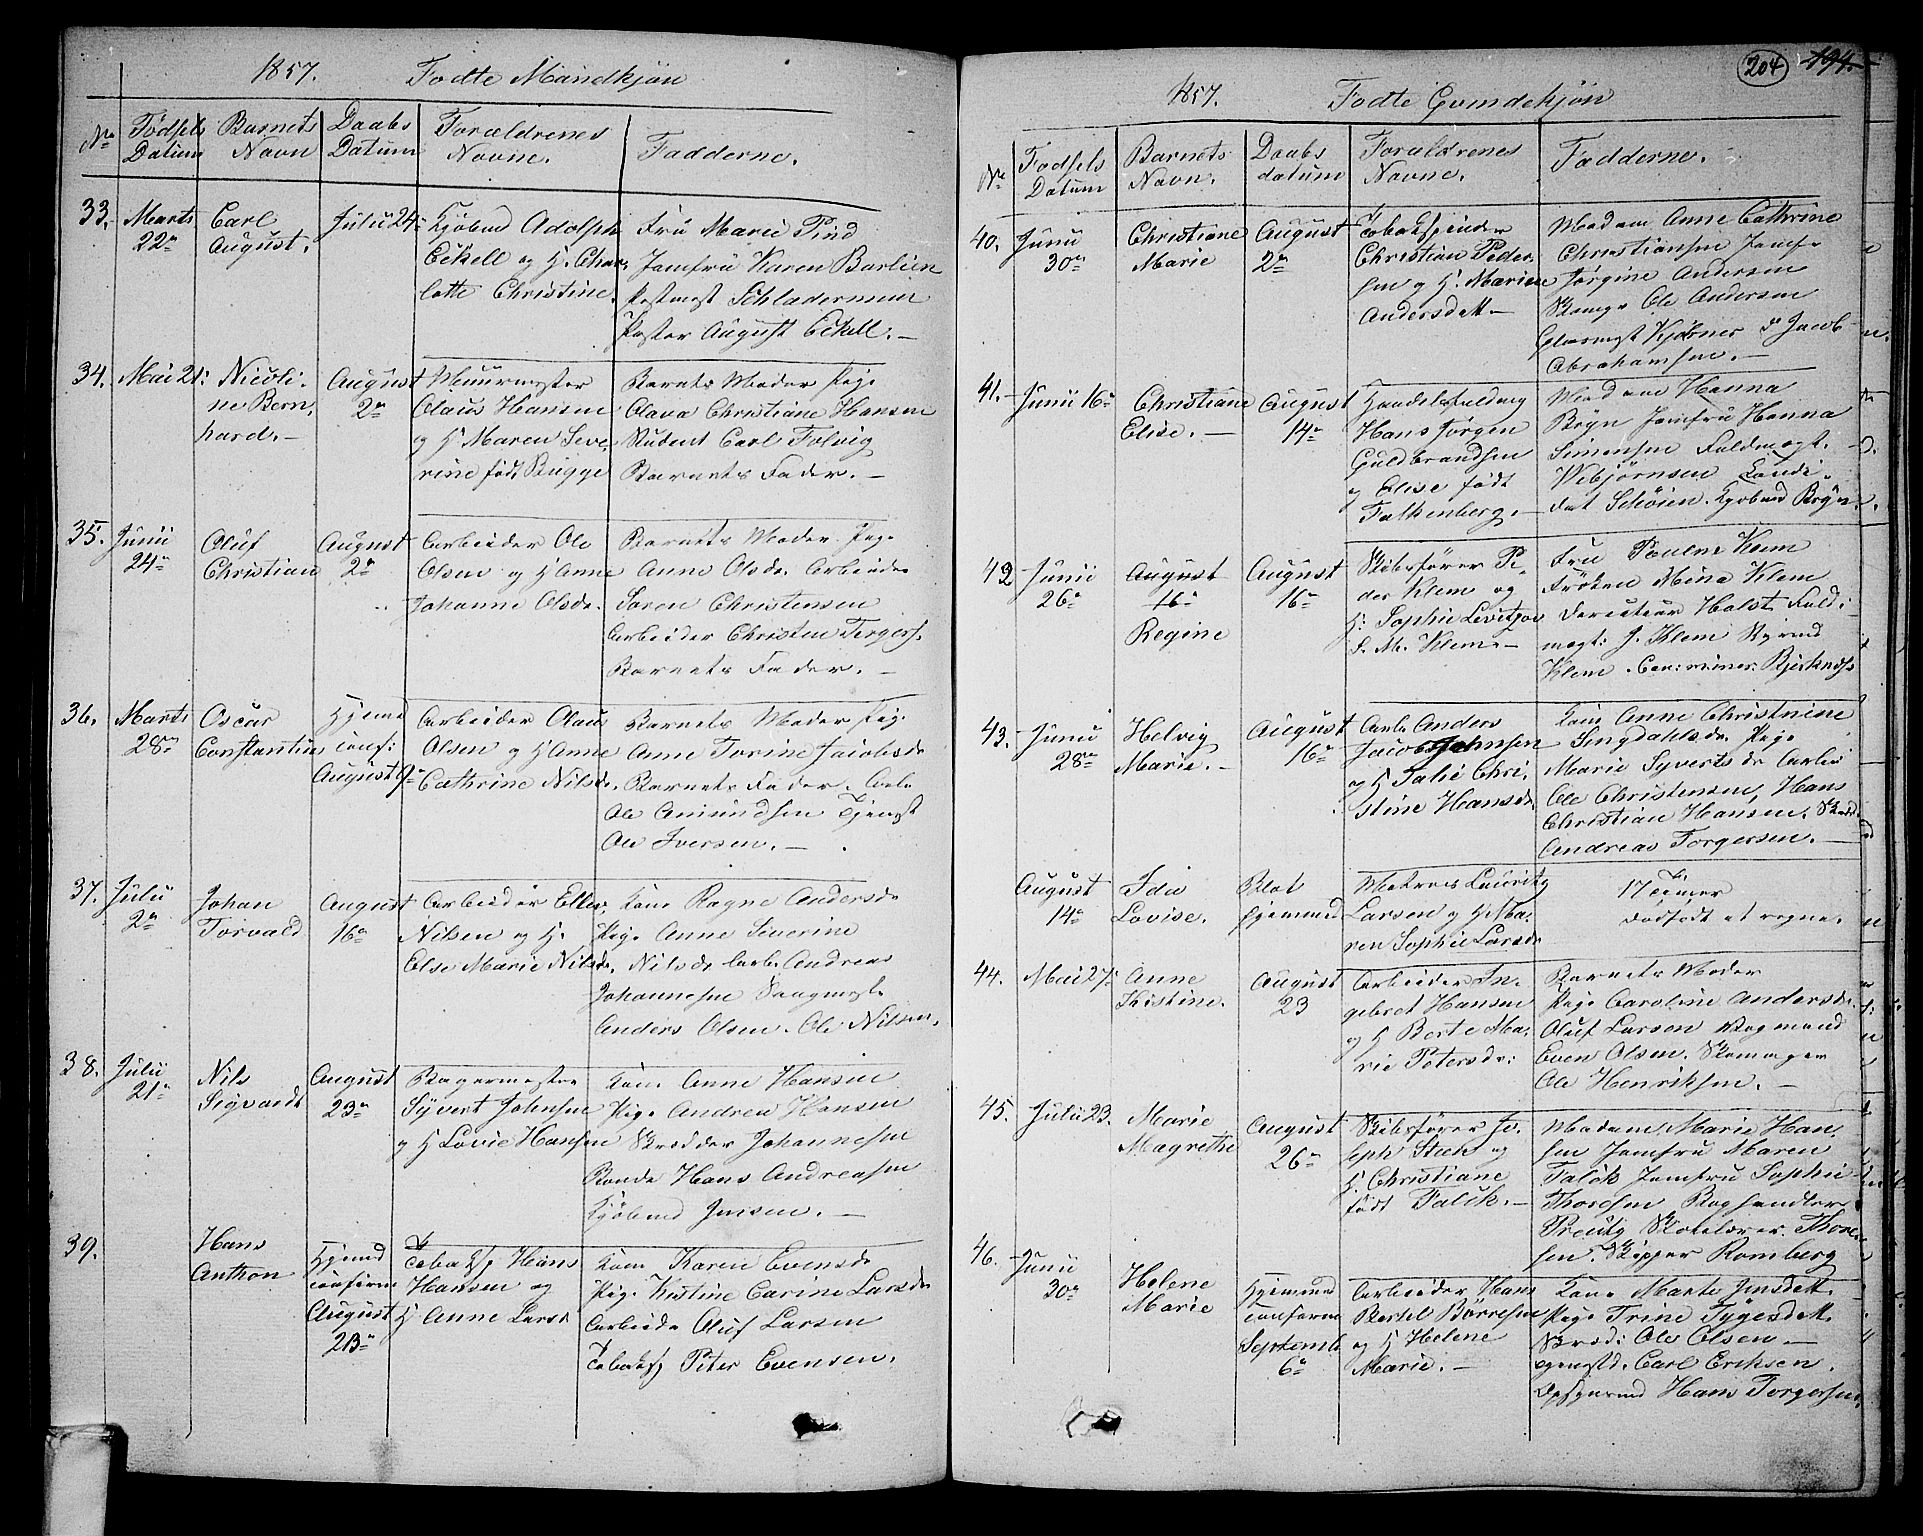 1857. Fødte Mandkjøn
No
Fødsels Datum
Barnets Navn
Daabs Datum
Forældrenes Navne.
Fadderne.
33.
Marts
22de
Carl
August.
Julii 24:
Kjøbmd Adolph
Eckell og H. Char
lotte Christine.
Fru Marie Pind
Jomfru Karen Barlien
Postmest Schladermun
Pastor August Eckell. —
34.
Mai 21:
Nicoli
ne Bern
hard. —
August
2de
Muurmester
Olaus Hansen
og H. Maren Seve
rine født Bugge
Barnets Moder Pige
Olava Christiane Hansen
Student Carl Tolvig
Barnets Fader. —
35.
Junii
24de
Oluf
Christian
August
2de
Arbeider Ole
Olsen og H Anne
Johanne Olsdr.
Barnets Moder. Pige
Anne Olsdr. Arbeider
Søren Christensen
Arbeider Christen Tergers.
Barnets Fader. —
36.
Marts
28de
Oscar
Constantin
Hjemme
conf:
August 9de
Arbeider Olaus
Olsen og H Anne
Cathrine Nilsdr.
Barnets Moder Pige
Anne Torine Jacobsdr
Barnets Fader. Arb.
Ole Amundsen Tjenest
Ole Iversen. —
37.
Julii
2de
Johan
Torvald
August
16de
Arbeider Ellev
Nilsen og H.
Else Marie Nilsdr.
Kone Ragne Andersdr
Pige Anne Severine
Nilsdr Arb. Andreas
Johannesen Baagmest.
Anders Olsen. Ole Nilsen.
38.
Julii
21de
Nils
Sigvardt
August
23de
Bagermester
Syvert Johnsen
og H Lovie Hansen
Kone Anne Hansen
Pige Andrea Hansen
Skredder Johannesen
Bonde Hans Andreasen
Kjøbmd Jensen. —
39.
Hans
Anthon
Hjemmd
confirm
August
23de
Tobaksp Hans
Hansen og
H Anne Larsd
Kone Karen Evensdr
Pige Kristine Carine Larsdr
Arbeider Oluf Larsen
Tobaksp Peter Evensen.
204 194.
1857. Fødte Qvindekjøn
No
Fødsels Datum
Barnets Navn.
Daabs datum
Forældrenes Navne.
Fadderne.
40.
Junii
30de
Christiane
Marie
August
2de
Tobakspinder
Christian Peder
sen og H. Maren
Andersdatt.
Madam Anne Cathrine
Christiansen Jomfr
Jørgine Andersen
Skomgr Ole Andersen
Glasmest Kjørner Jacob
Abrahamsen. —
41.
Junii 16de
Christiane
Elise. —
August
14de
Handelsfuldmg
Hans Jørgen
Guldbrandsen
og Elise født
Falkenberg. —
Madam Hanna
Bryn Jomfru Hanna
Simensen Fuldmægt.
Wibjørnsen Candi
dat Schøien. Kjøbmd Bryn
42
Junii
26de
August
16de
Regine
August
16de
Skibsfører Pe
der Klem og
H: Sophie Levetzov
f. M. Klem —
Fru Pauline Klem
Frøken Mina Klem
Directeur Holst Fuld
mægt: J. Klem
Klem.
43.
Junii
28de
Helvig
Marie. —
August
16de
Arb. Anders
Jacob Johnsen
og H Julie Chri
stine Hansdr.
Kone Anne Christnine
Engdahlsdr Pige
Marie Syvertsdr Arbei
Ole Christensen, Hans
Christian Hansen.
Andreas Torgersen. —
August
14de
Ida
Lovise.
Blot
hjemmed
Matros Lauritz
Larsen og H Ma
ren Sophie Larsdr
17 Timer
Dødfødt at regne.
44.
Mai 27:
Anne
Kistine.
August
23
Arbeider In
gebret Hansen
og H Berte Ma
rie Petersdr:
Barnets Moder
Pige Caroline Andersdr.
Oluf Larsen Bogmand
Even Olsen. Skomager
Ole Henriksen. —
45.
Julii 23.
Marie
Magrethe
August
26de
Skibsfører Jo
seph Steen og
H. Christiane
født Falck. —
Madam Marie Han
sen Jomfru Maren
Falck Jomfru Sophie
Thoresen Boghandler
Preutz Skolelærer Thore
sen. Skipper Romberg
46.
Junii
30de
Helene
Marie
Hjemmed
confirm
Septemb
6te
Arbeider Hans
Bertel Børresen
og H Helene
Marie. —
Kone Marte Jensdatt.
Pige Trine Tygesdatt.
Skræd: Ole Olsen —
Carl Eriksen.
Opsynsmd Hans Torgersen.